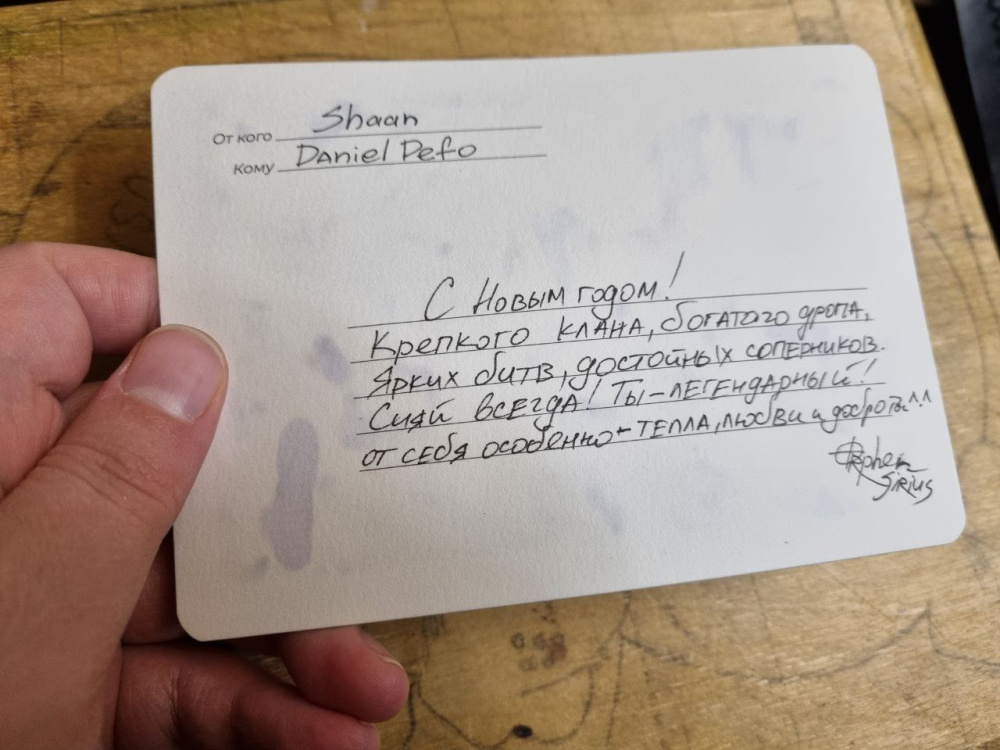 От кого Shaan
Кому Daniel Defo
С Новым годом!
Крепкого клана, богатого дропа,
Ярких битв, достойных соперников.
Сияй всегда! Ты – легендарный!
от себя особенно – тепла, любви и доброты ^.^
Sirius